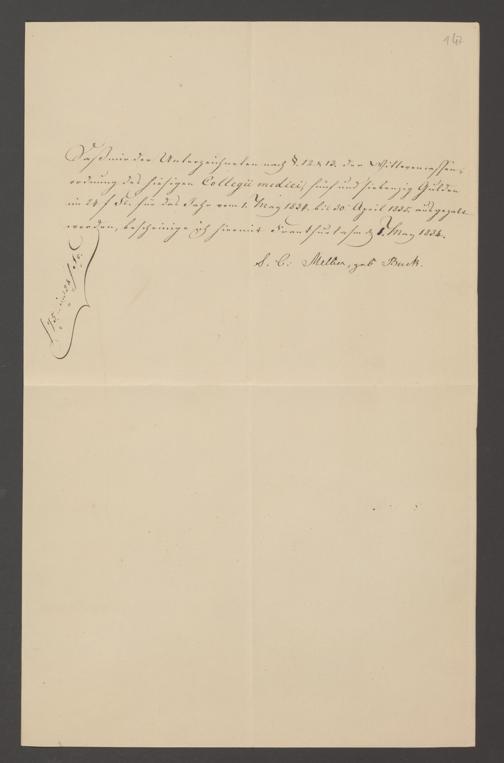 147
Daß mir der Unterzeichneten nach § 12 & 13. der Wittwencassen-
ordnung des hiesigen Collegii medici, fünf und siebenzig Gulden
im 24 f Fß. für das Jahr vom 1. May 1834. bis 30 April 1835. ausgezalt
worden, bescheinige ich hiermit Frankfurt a/m d 1. May 1834.
S. C. Melber, geb Buck.
f 75. im 24 f Fß.